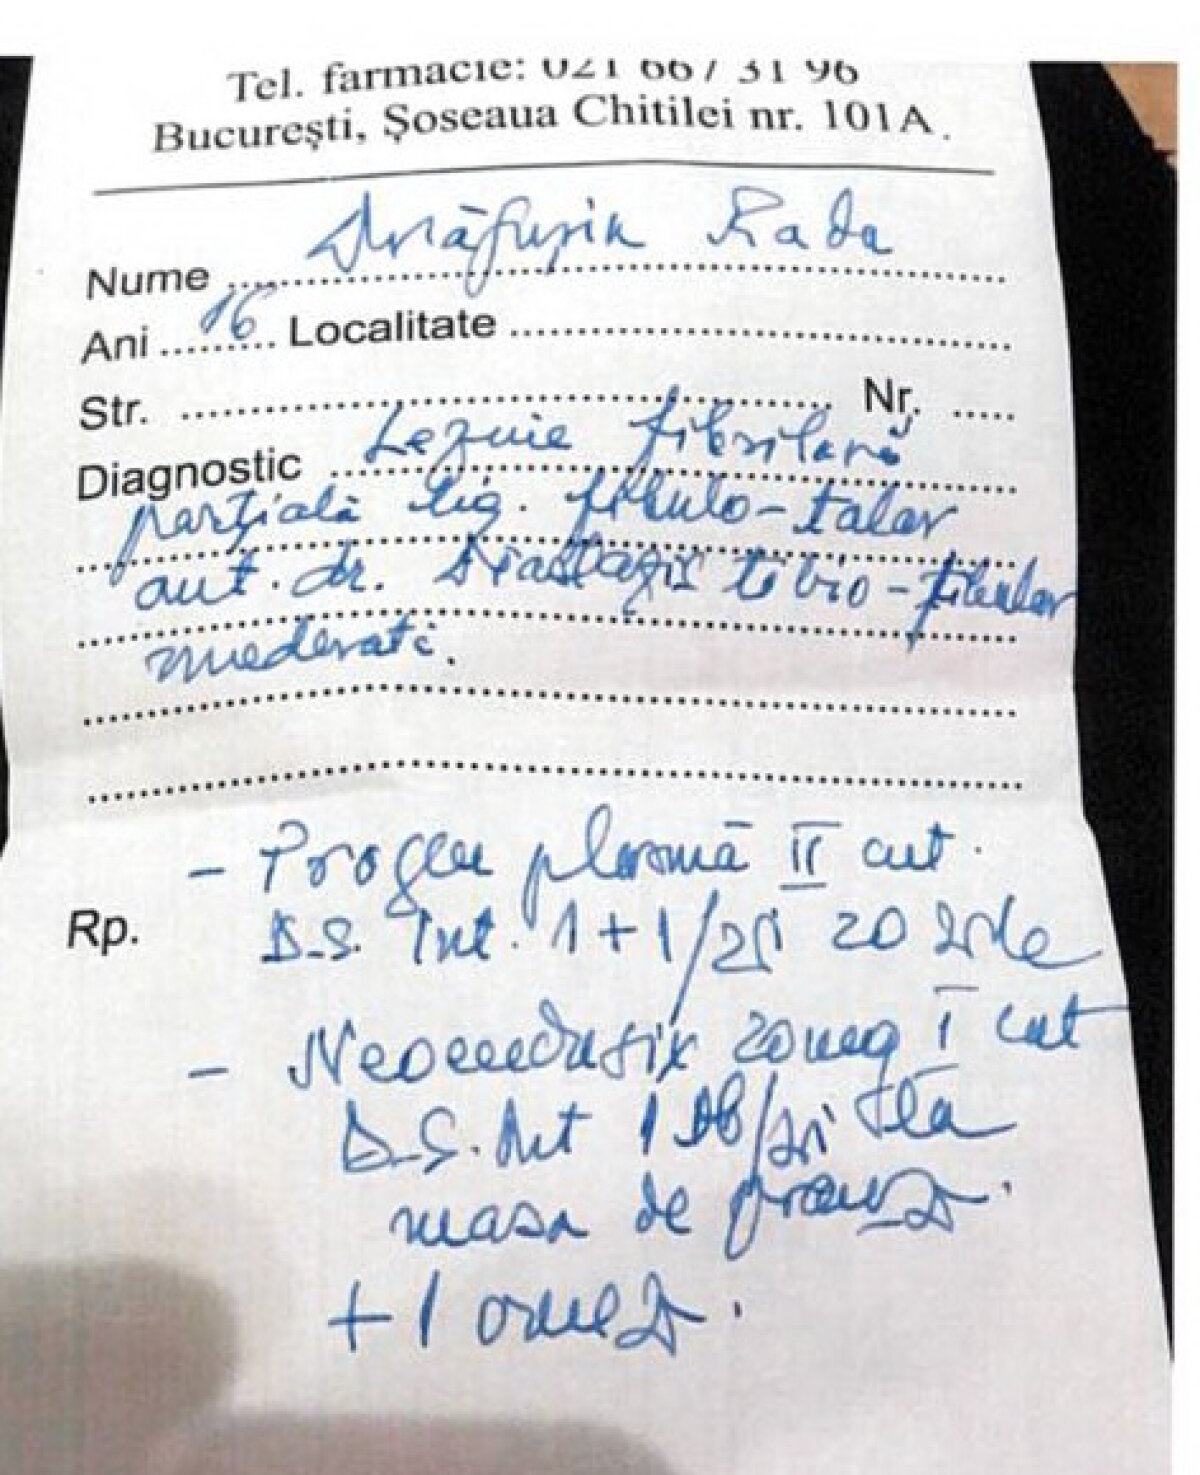 Tel. farmacie: 021 667 31 96
București, Șoseaua Chitilei nr. 101A.
Nume Rada
Ani 16 Localitate
Str. Nr.
Diagnostic Lezuie fibrilară
parțială lig. fibulo-talar
ant. dr. Diastazis tibio-fibular
moderată.
- plasmă II cut.
Rp. D.S. Int. 1+1/zi 20 zile
- 20mg I cut
D.S. Int 1 /zi la
masa de
+ 1